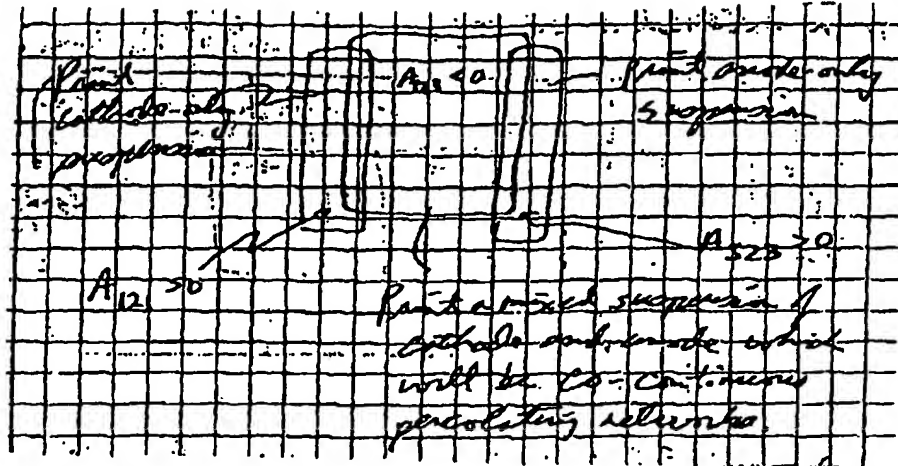 Print
cathode-only
suspension
A₁₂₃ < 0
Print anode-only
suspension
A₅₂₃ > 0
A₁₂ >0
Print a mixed suspension of
cathode and anode which
will be co-continuous
percolating networks.